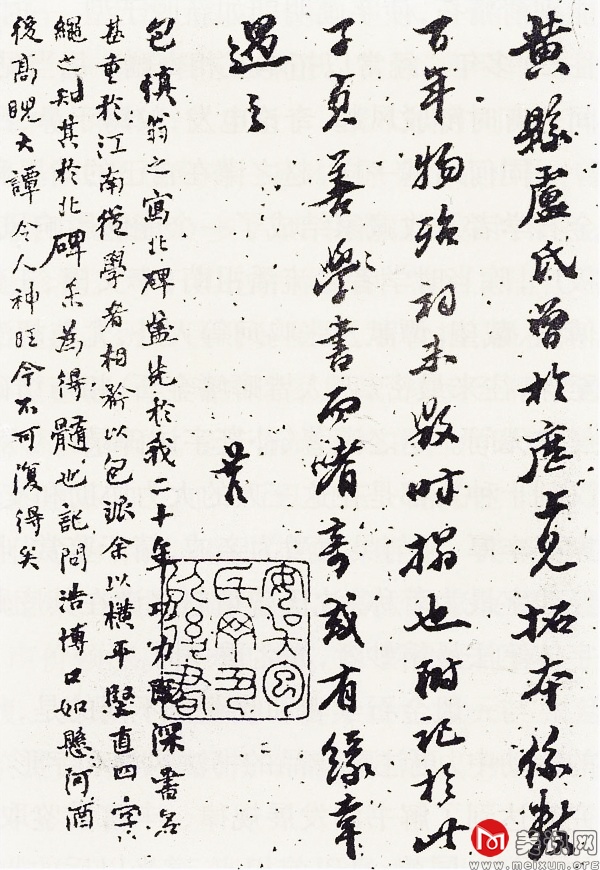 黄縣盧氏曾於座上見拓本係數
百年物殆初未毀時搨也附記於此
子貞善學書而嗜奇或有緣幸
遇之
包慎翁之寫北碑蓋先於我二十年功力既深書名
甚重於江南從學者相矜以包派余以橫平豎直四字
繩之知其於北碑未為得髓也記問浩博口如懸河酒
後高睨大譚令人神旺今不可復得矣
www.meixun.org